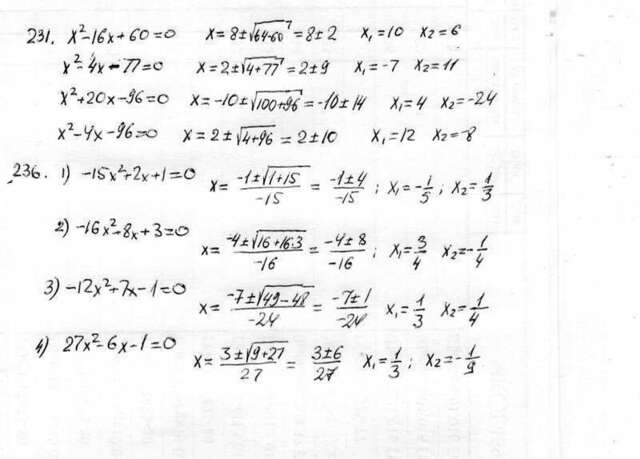 231. x²-16x+60=0 x=8±√64-60=8±2 x₁=10 x₂=6
x²-4x-77=0 x=2±√4+77=2±9 x₁=-7 x₂=11
x²+20x-96=0 x=-10±√100+96=-10±14 x₁=4 x₂=-24
x²-4x-96=0 x=2±√4+96=2±10 x₁=12 x₂=-8
236. 1) -15x²+2x+1=0 x=(-1±√1+15)/(-15)=(-1±4)/(-15); x₁=-1/5; x₂=1/3
2) -16x²+8x+3=0 x=(-4±√16+16·3)/(-16)=(-4±8)/(-16); x₁=3/4 x₂=-1/4
3) -12x²+7x-1=0 x=(-7±√49-48)/(-24)=(-7±1)/(-24) x₁=1/3 x₂=1/4
4) 27x²-6x-1=0 x=(3±√9+27)/27=(3±6)/27 x₁=1/3; x₂=-1/9